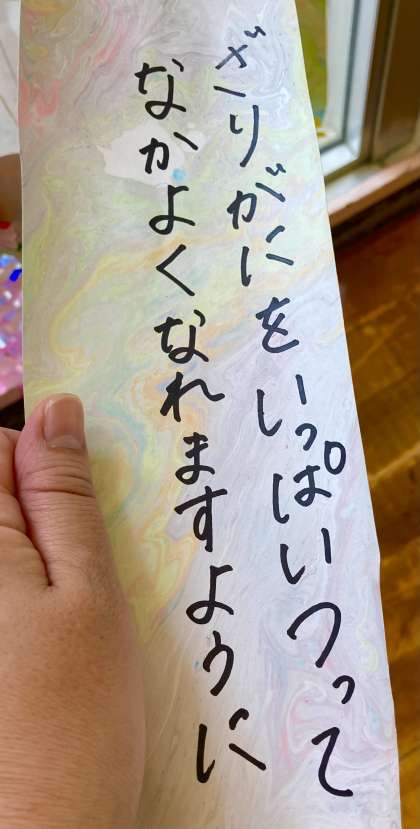 ざりがにをいっぱいつって
なかよくなれますように